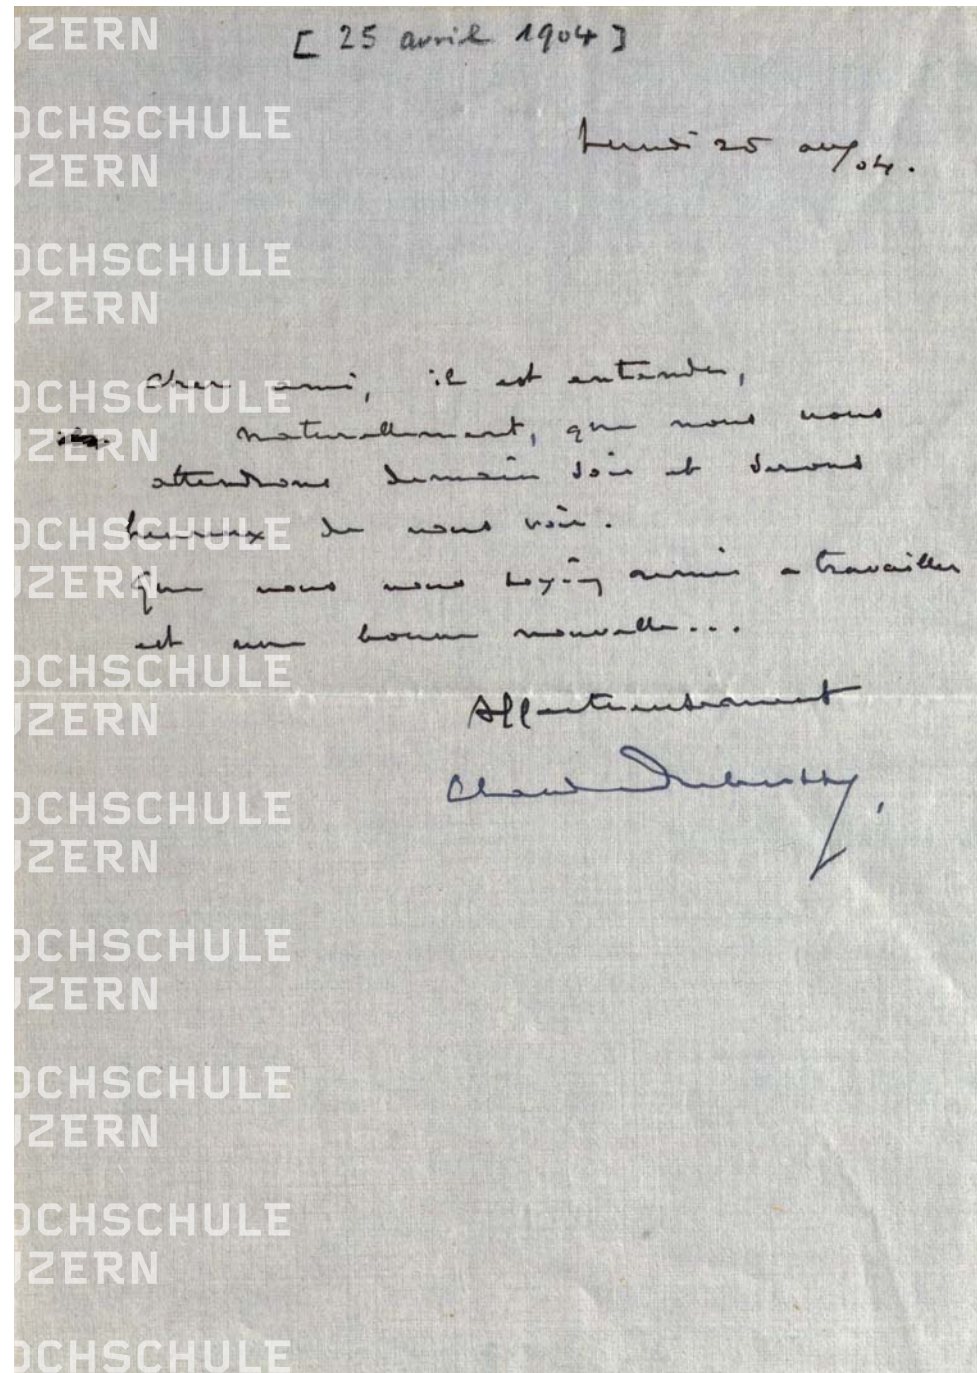 [ 25 avril 1904 ]
Lundi 25 av/04.
Cher ami, il est entendu,
naturellement, que nous vous
attendrons demain soir et serons
heureux de vous voir.
Que vous vous soyez remis a travailler
est une bonne nouvelle...
Affectueusement
Claude Debussy,
OCHSCHULE
UZERN